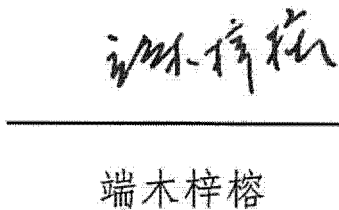 端木梓榕
端木梓榕